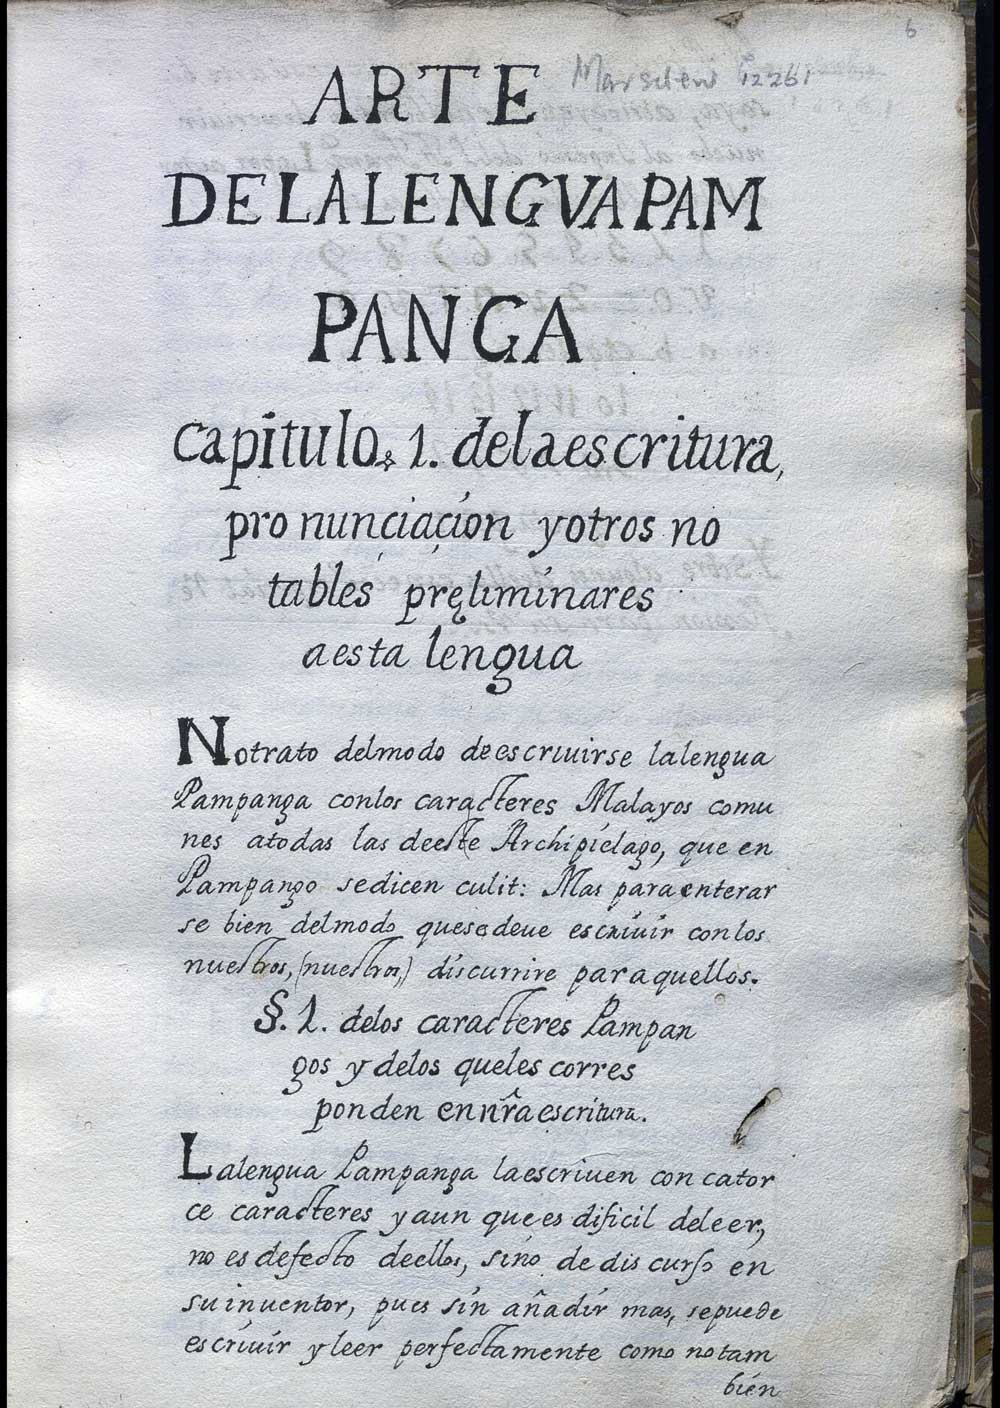 6
Marsden
12261
ARTE
DE LA LENGVA PAM
PANGA
Capitulo. 1. dela escritura,
pronunciación y otros no
tables preliminares
a esta lengua
No trato del modo de escriuirse la lengua
Pampanga con los caracteres Malayos comu
nes a todas las de este Archipielago, que en
Pampango se dicen culit: Mas para enterar
se bien del modo que se deue escriuir con los
nuestros, (nuestros,) discurrire para quellos.
§. 1. de los caracteres Pampan
gos y de los que les corres
ponden en nr̃a escritura.
La lengua Pampanga la escriuen con cator
ce caracteres y aun que es dificil de leer,
no es defecto de ellos, sino de discurso en
su inuentor, pues sin añadir mas, se puede
escriuir y leer perfectamente como no tam
bién